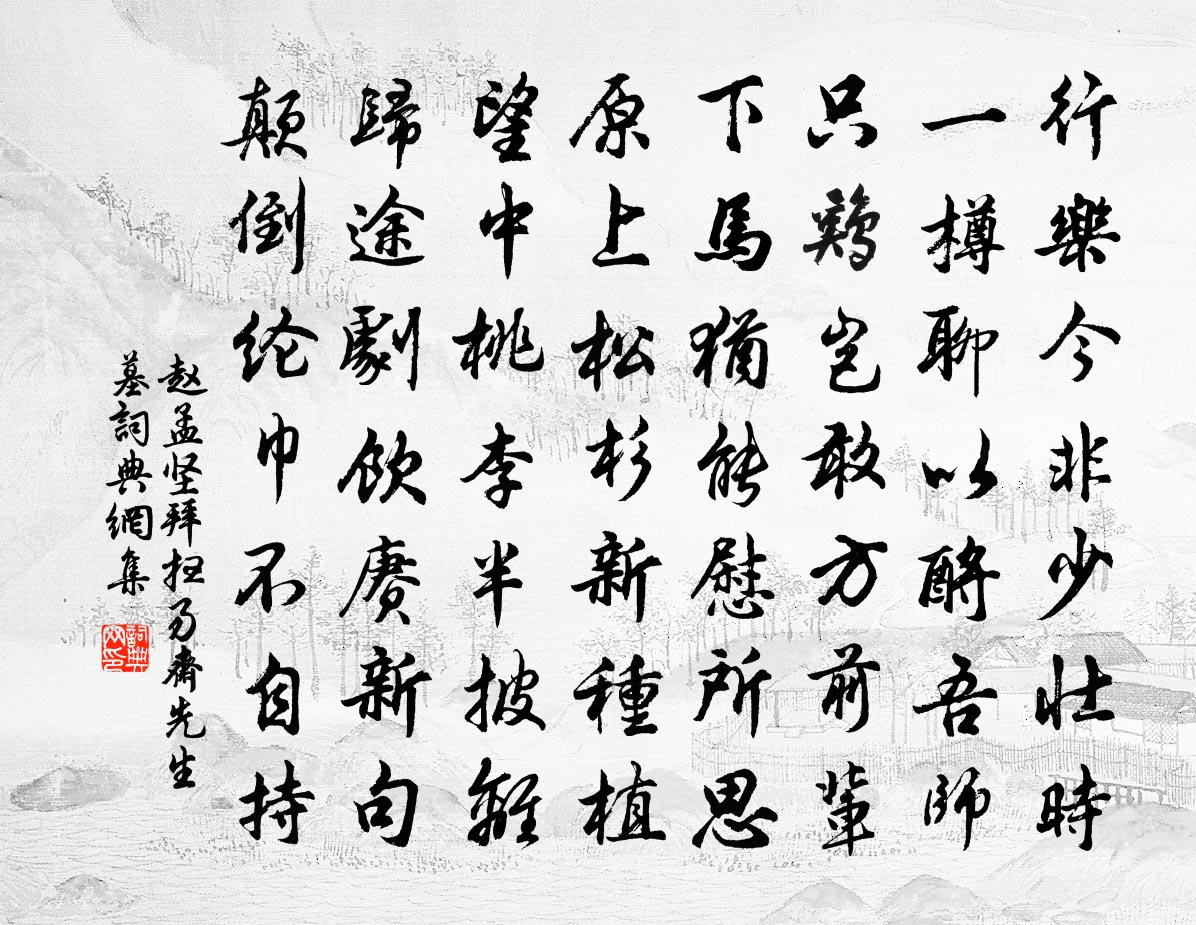 行樂今非少壯時
一樽聊以酹吾師
只鷄豈敢方前輩
下馬猶能慰所思
原上松杉新種植
望中桃李半披離
歸途劇飲賡新句
顛倒纶巾不自持
赵孟坚拜抂易齋先生
墓詞典網集
詞典網印